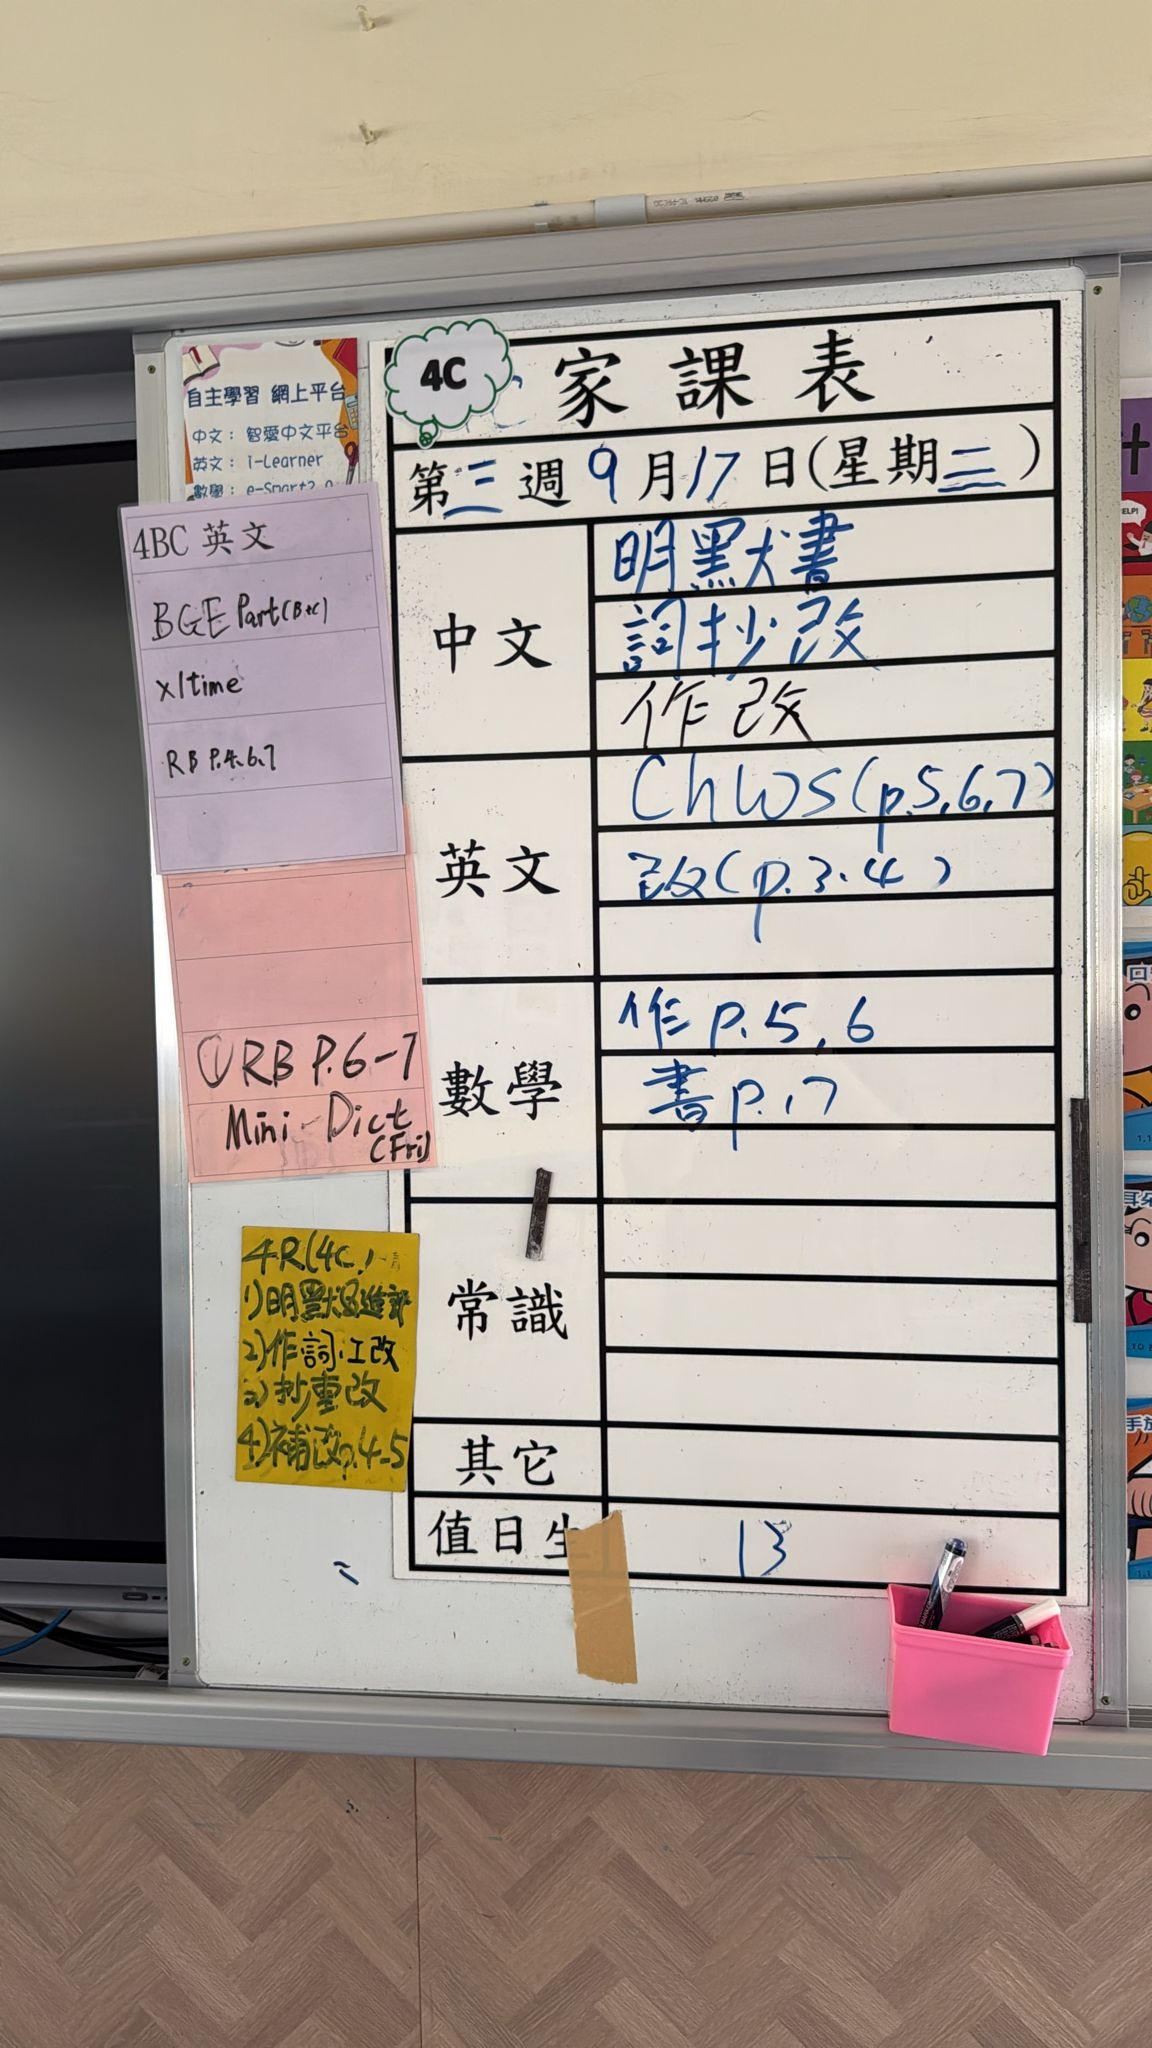 4C
家課表
第三週9月17日(星期三)
中文
明默書
詞抄改
作改
英文
Ch WS (p.5,6,7)
改(p.3.4)
數學
作p.5,6
書p.17
常識
其它
值日生
13
自主學習 網上平台
中文：智愛中文平台
英文：i-Learner
數學：e-Smart2.0
4BC 英文
BGE Part (B+C)
x1time
RB P.4.6.7
①RB P.6-7
Mini-Dict
(Fri)
4R(4C)
1)明默
2)作詞.工改
3)抄重改
4)補改p.4-5
HELP!